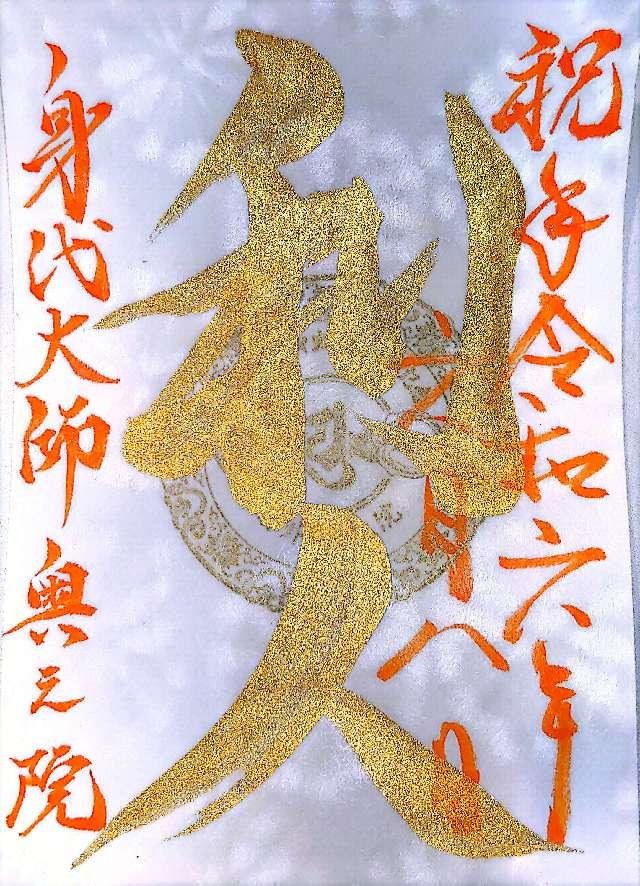 祝
令和六年
月八日
利久
身代大師 奥之院